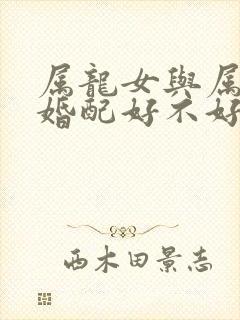 属龍女與属
婚配好不好
西木田景志